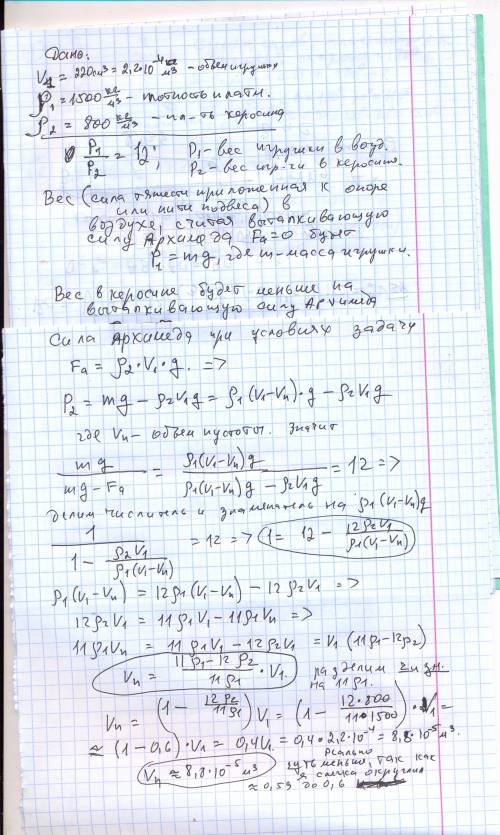 Дано:
V₁ = 220см³ = 2,2·10⁻⁴ м³ – объем игрушки
ρ₁ = 1500 кг/м³ – плотность пластм.
ρ₂ = 800 кг/м³ – пл-ть керосина
P₁/P₂ = 12; P₁ – вес игрушки в возд.
P₂ – вес игр-ки в керосине.
Вес (сила тяжести приложенная к опоре
или нити подвеса) в
воздухе, считая выталкивающую
силу Архимеда Fа=0 будет
P₁ = mg, где m - масса игрушки.
Вес в керосине будет меньше на
выталкивающую силу Архимеда
Сила Архимеда при условиях задачи
Fа = ρ₂·V₁·g. =>
P₂ = mg – ρ₂V₁g = ρ₁(V₁–Vп)·g – ρ₂V₁g
где Vп – объем пустоты. Значит
mg/(mg – Fа) = ρ₁(V₁–Vп)g/(ρ₁(V₁–Vп)g – ρ₂V₁g) = 12 =>
делим числитель и знаменатель на ρ₁(V₁–Vп)g
1/(1 – ρ₂V₁/(ρ₁(V₁–Vп))) = 12 => 1 = 12 – 12ρ₂V₁/(ρ₁(V₁–Vп))
ρ₁(V₁–Vп) = 12ρ₁(V₁–Vп) – 12ρ₂V₁ =>
12ρ₂V₁ = 11ρ₁V₁ – 11ρ₁Vп =>
11ρ₁Vп = 11ρ₁V₁ – 12ρ₂V₁ = V₁(11ρ₁–12ρ₂)
Vп = (11ρ₁–12ρ₂)/(11ρ₁)·V₁. разделим ч и зн.
на 11ρ₁.
Vп = (1 – 12ρ₂/11ρ₁) V₁ = (1 – 12·800/11·1500)·V₁ =
≈ (1 – 0,6)·V₁ = 0,4V₁ = 0,4·2,2·10⁻⁴ = 8,8·10⁻⁵ м³.
Vп ≈ 8,8·10⁻⁵ м³
Реально
чуть меньше, так как
я слегка округлил
≈ 0,59 до 0,6